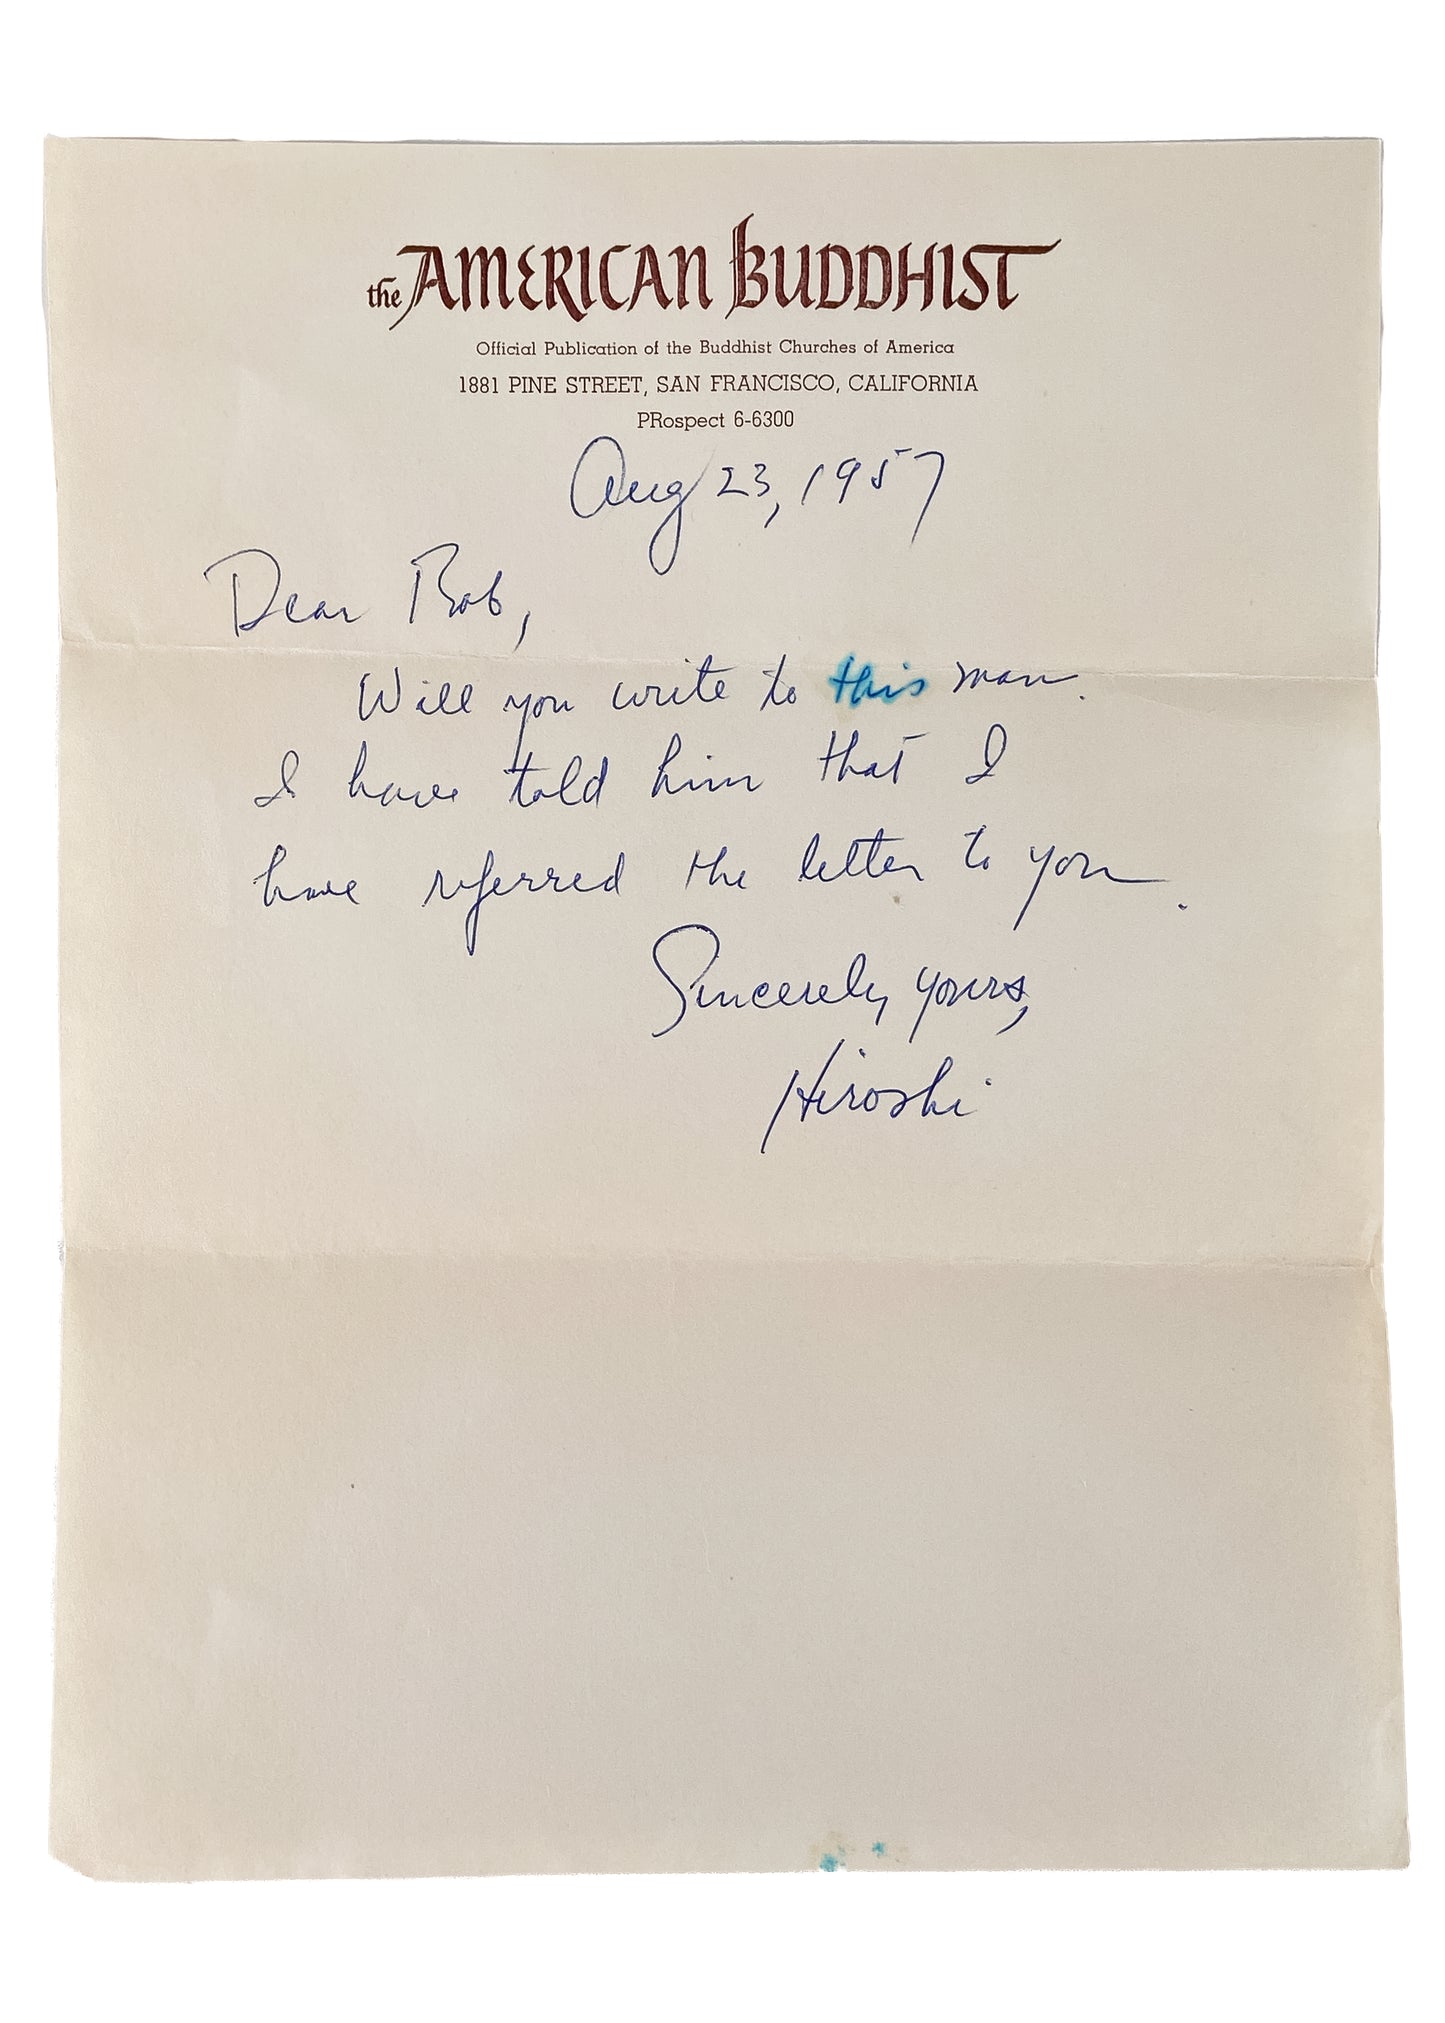 the AMERICAN BUDDHIST
Official Publication of the Buddhist Churches of America
1881 PINE STREET, SAN FRANCISCO, CALIFORNIA
PRospect 6-6300
Aug 23, 1957
Dear Bob,
Will you write to this man.
I have told him that I
have referred the letter to you.
Sincerely yours,
Hiroshi